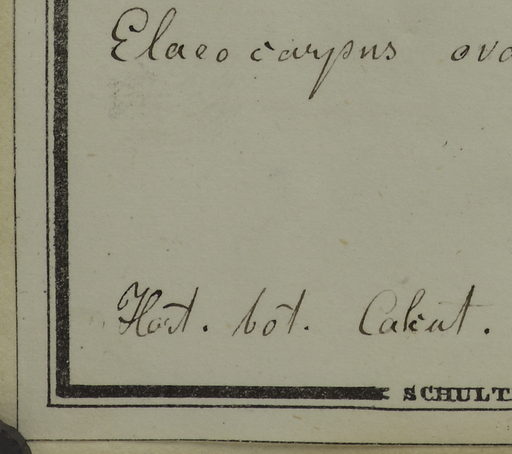 Elaeocarpus ova
Hort. bot. Calcut.
SCHULT